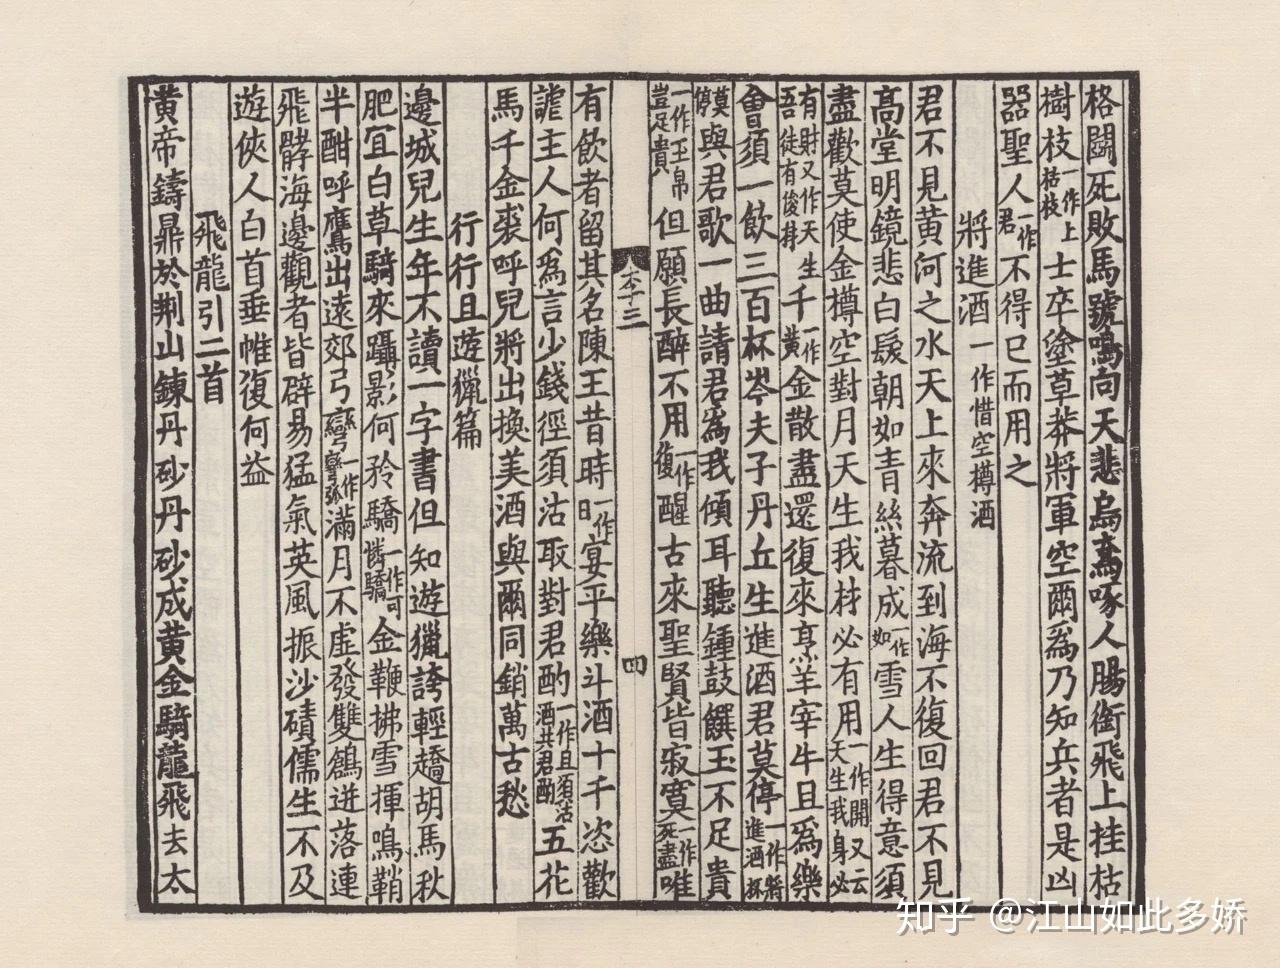 格鬪死敗馬號鳴向天悲烏鳶啄人腸銜飛上挂枯
樹枝一作上枯枝士卒塗草莽將軍空爾爲乃知兵者是凶
器聖人一作君不得已而用之
將進酒一作惜空樽酒
君不見黃河之水天上來奔流到海不復回君不見
高堂明鏡悲白髮朝如青絲暮成一作如雪人生得意須
盡歡莫使金樽空對月天生我材必有用一作開又云天生我身必
有財又作天生吾徒有俊材千一作黃金散盡還復來烹羊宰牛且爲樂
會須一飲三百杯岑夫子丹丘生進酒君莫停一作將進酒杯
莫停與君歌一曲請君爲我傾耳聽鍾鼓饌玉不足貴
一作玉帛豈足貴但願長醉不用一作復醒古來聖賢皆寂寞一作死盡唯
本十三
四
有飲者留其名陳王昔時一作日宴平樂斗酒十千恣歡
謔主人何爲言少錢徑須沽取對君酌一作且須沽酒共君酌五花
馬千金裘呼兒將出換美酒與爾同銷萬古愁
行行且遊獵篇
邊城兒生年不讀一字書但知遊獵誇輕趫胡馬秋
肥宜白草騎來躡影何矜驕一作可憐驕金鞭拂雪揮鳴鞘
半酣呼鷹出遠郊弓彎一作彎弧滿月不虛發雙鶬迸落連
飛髇海邊觀者皆辟易猛氣英風振沙磧儒生不及
遊俠人白首垂帷復何益
飛龍引二首
黃帝鑄鼎於荆山鍊丹砂丹砂成黃金騎龍飛去太
知乎 @江山如此多娇